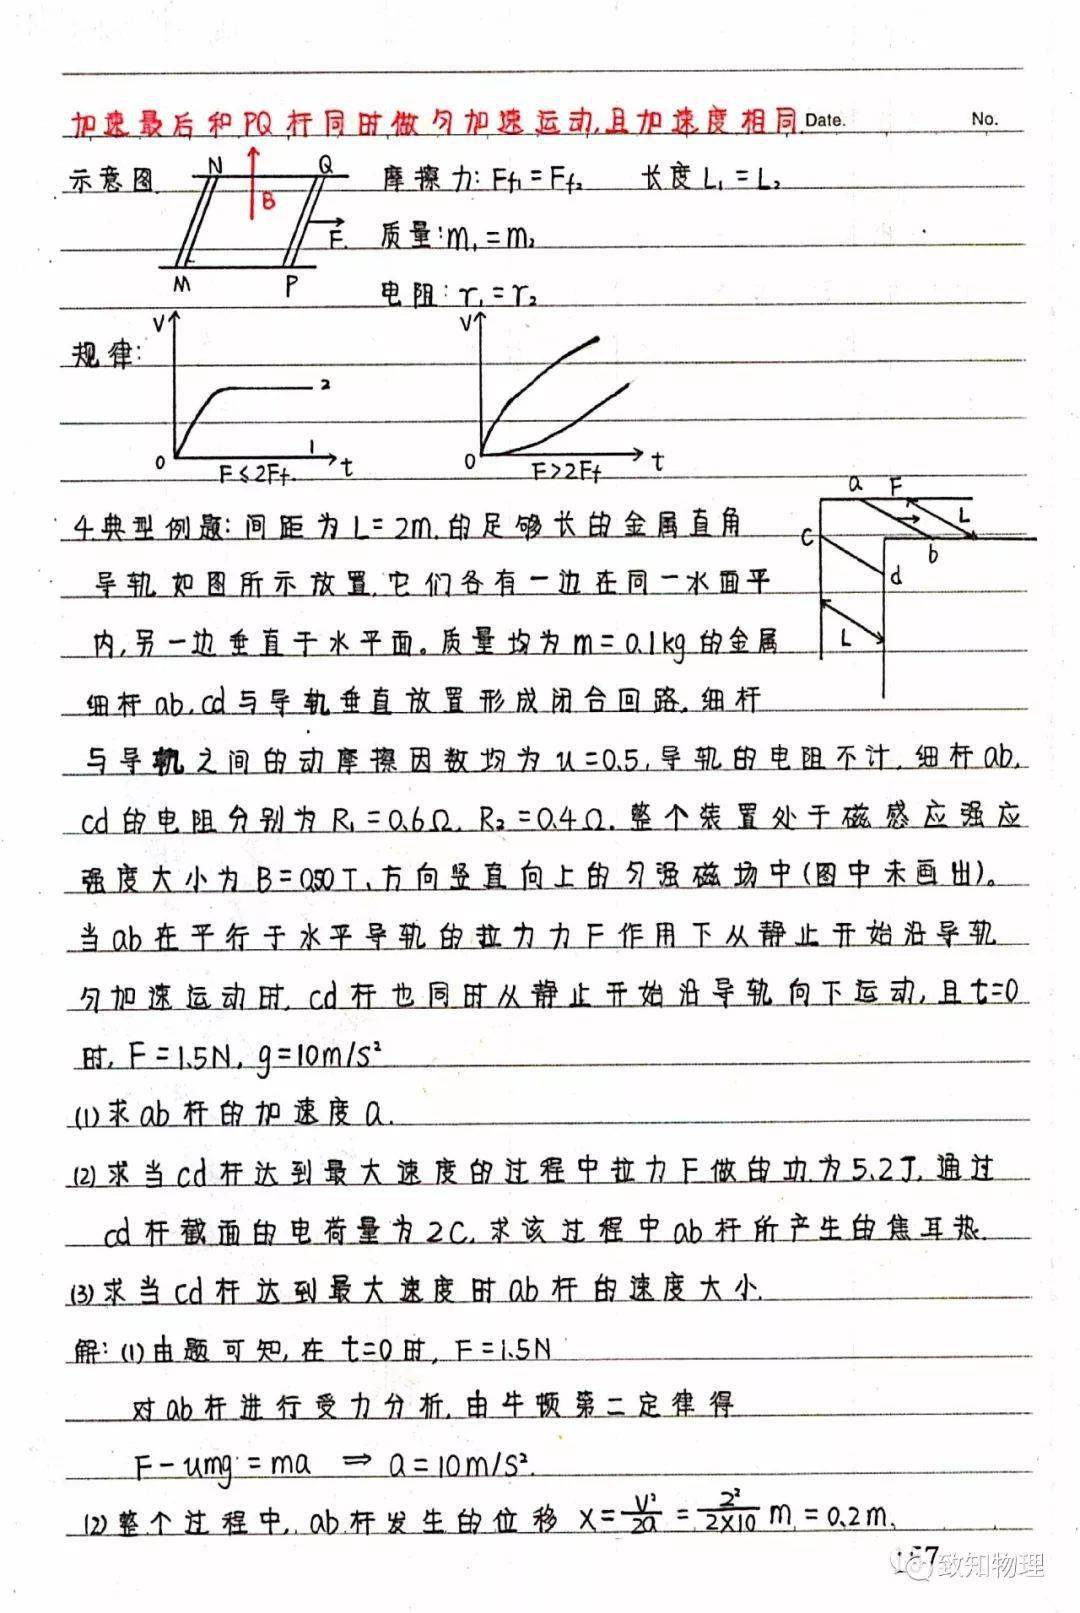 加速最后和PQ杆同时做匀加速运动,且加速度相同 Date. No.
示意图 N Q B F M P 摩擦力: Ff₁=Ff₂ 长度L₁=L₂
质量:m₁=m₂
电阻:r₁=r₂
规律: V 2 1 0 F≤2Ff. t V 0 F>2Ff t
a F L c b d L
4.典型例题:间距为L=2m.的足够长的金属直角
导轨如图所示放置,它们各有一边在同一水面平
内,另一边垂直于水平面。质量均为m=0.1kg的金属
细杆ab,cd与导轨垂直放置形成闭合回路,细杆
与导轨之间的动摩擦因数均为u=0.5,导轨的电阻不计,细杆ab,
cd的电阻分别为R₁=0.6Ω,R₂=0.4Ω.整个装置处于磁感应强应
强度大小为B=0.50T、方向竖直向上的匀强磁场中(图中未画出)。
当ab在平行于水平导轨的拉力力F作用下从静止开始沿导轨
匀加速运动时,cd杆也同时从静止开始沿导轨向下运动,且t=0
时,F=1.5N,g=10m/s²
(1)求ab杆的加速度a.
(2)求当cd杆达到最大速度的过程中拉力F做的功为5.2J,通过
cd杆截面的电荷量为2C,求该过程中ab杆所产生的焦耳热.
(3)求当cd杆达到最大速度时ab杆的速度大小.
解:(1)由题可知,在t=0时,F=1.5N
对ab杆进行受力分析,由牛顿第二定律得
F-umg=ma ⇒ a=10m/s².
(2)整个过程中,ab杆发生的位移 x=V²/2a=2²/2×10 m=0.2m.
致知物理